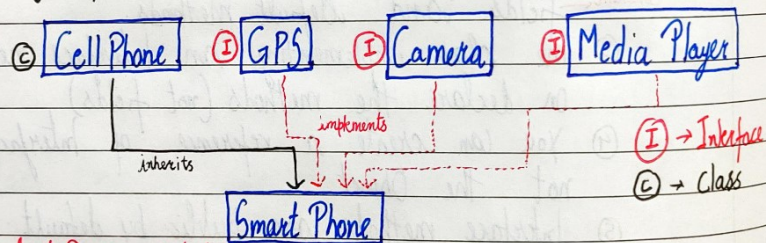 C Cell Phone I GPS I Camera I Media Player
impments
I → Interface
inherits
C → Class
Smart Phone